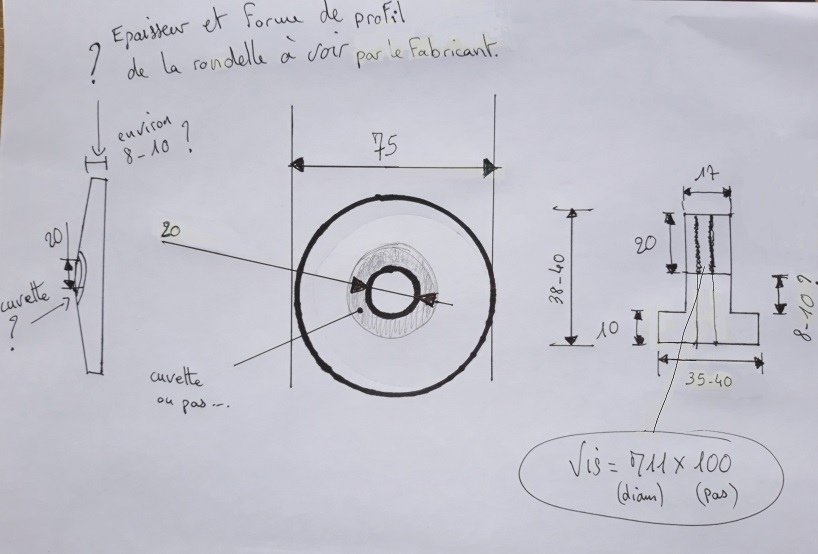 ? Epaisseur et Forme de profil
de la rondelle à voir par le Fabricant.
environ
8-10 ?
20
cuvette
?
75
20
cuvette
ou pas...
17
38-40
20
10
8-10 ?
35-40
Vis = 711 x 100
(diam) (pas)